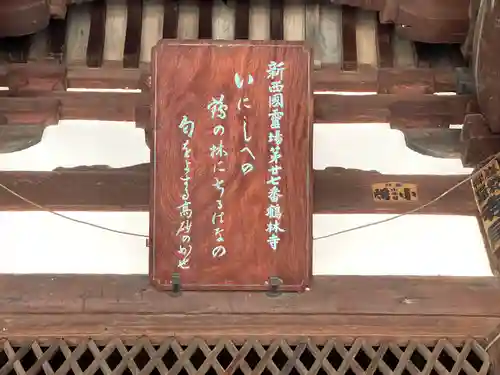 新西國靈場第廿七番鶴林寺
いにしへの
鶴の林にちるはなの
匂をよする高砂のかぜ